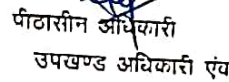 पीठासीन अधिकारी
उपखण्ड अधिकारी एंव